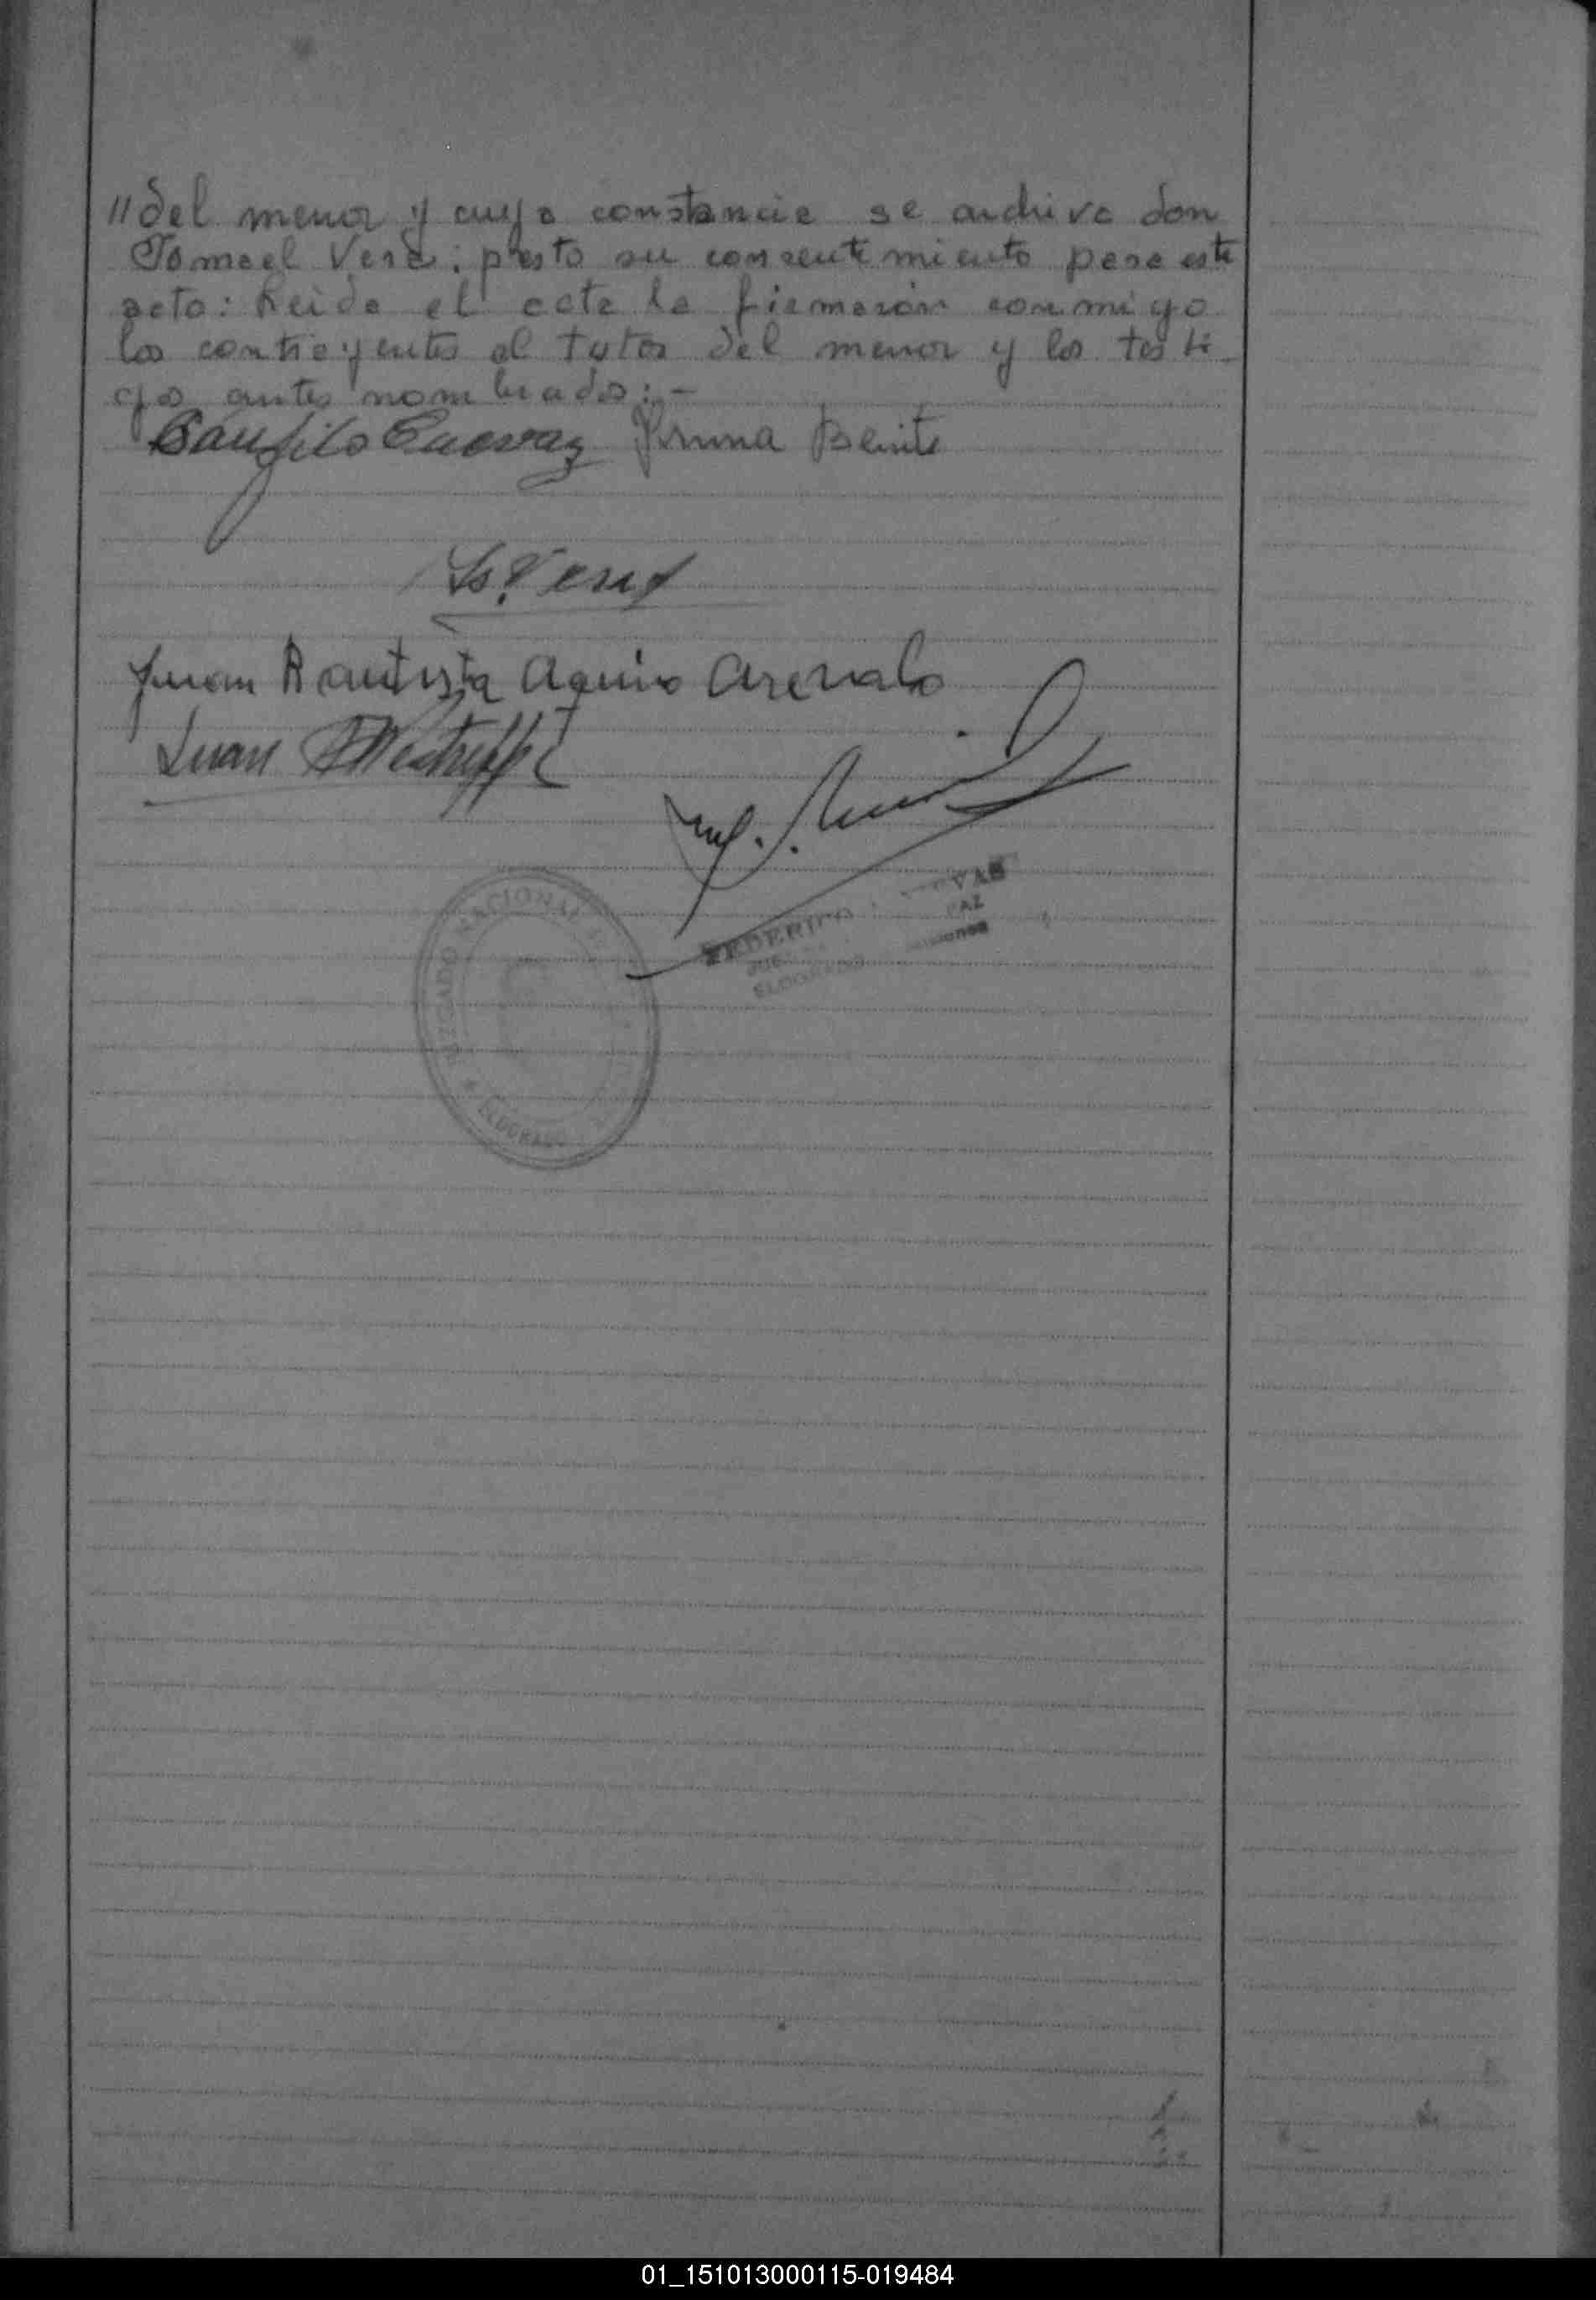 "del menor y cuya constancia se archiva don
Ismael Vera; presto su consentimiento para este
acto: Leida el acta la firmarón conmigo
los contrayentes el tutor del menor y los testi-
gos antes nombrados:-
Cuevaz Juana Benite
Is. Vera
Juan Bautista Aquino Arevalo
Juan
FEDERICO VAS
JUE PAZ
ELDORADO Misiones
JUZGADO NACIONAL
★ ELDORADO
01_151013000115-019484